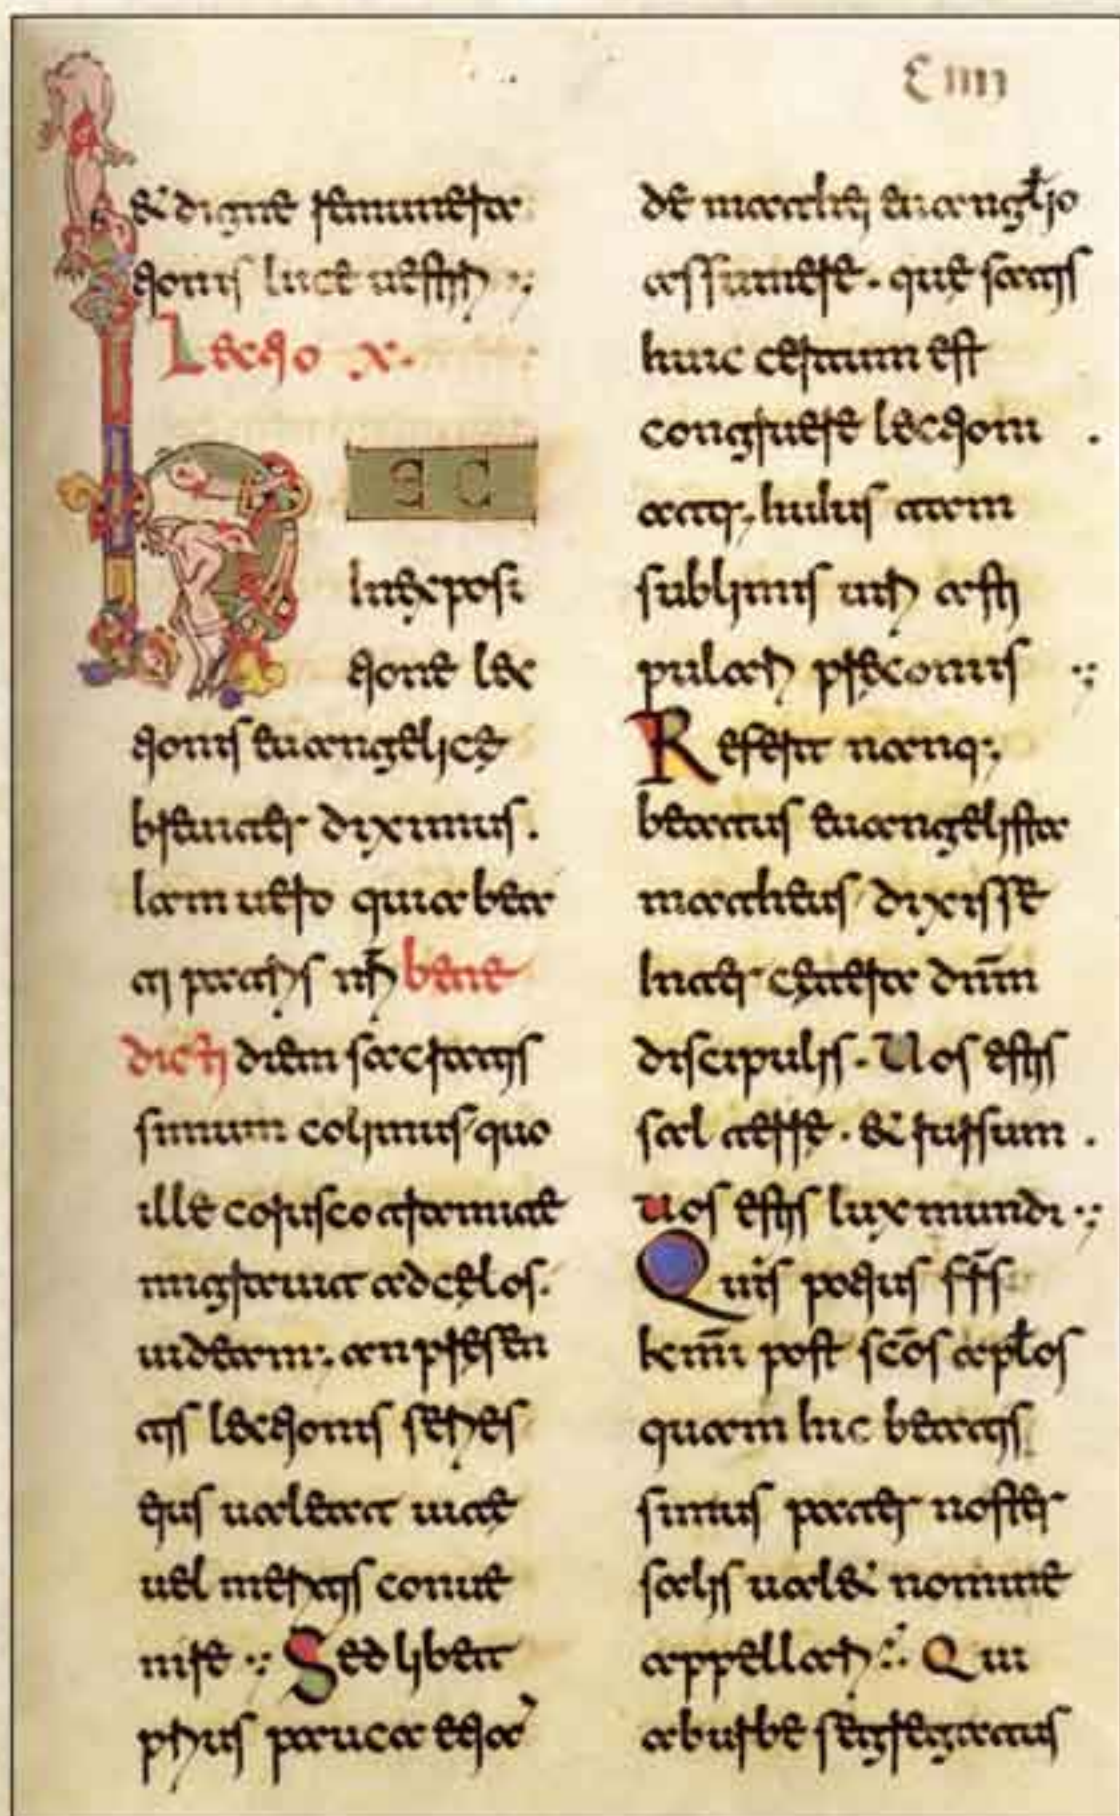 C IIII
& digne remunera
tionis luce uestiri
Lectio x.
HEC
in exposi
tione lec
tionis euangelice
breuiter diximus.
Iam uero quia bea
ti patris nri bene
dicti diem sacratis
simum colimus quo
ille corusco tramite
migrauit ad celos.
uideam; an presen
tis lectionis series
eius ualeat uite
uel meritis conue
nire Sed libet
prius pauca etia
de mathei euanglio
assumere. que satis
huic certum est
congruere lectioni
atq;
sublimis uiri asti
pulari preconiis
Refert namq;
beatus euangelista
matheus dixisse
inter cetera dnm
discipulis. Uos estis
sal terre. & rursum.
uos estis lux mundi
Quis potius frs
kmi post scos aplos
quam hic beatis
simus pater noster
salis ual& nomine
appellari Qui
ab urbe segregatus